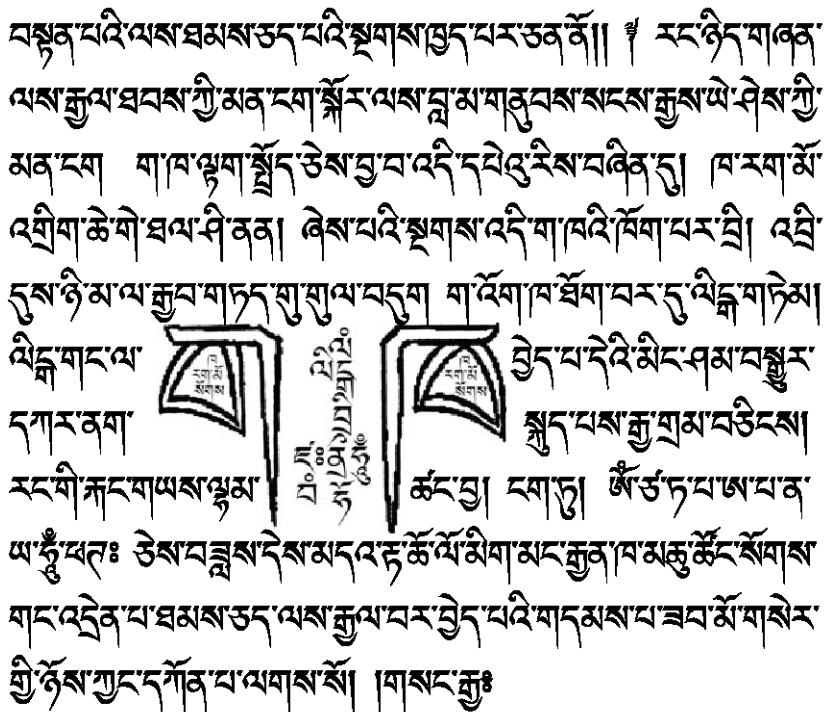 བསྟན་པའི་ལས་ཐམས་ཅད་པའི་སྔགས་ཁྱད་པར་ཅན་ནོ།། ༈ རང་ཉིད་གཞན་
ལས་རྒྱལ་ཐབས་ཀྱི་མན་ངག་སྐོར་ལས་བླ་མ་གནུབས་སངས་རྒྱས་ཡེ་ཤེས་ཀྱི་
མན་ངག ག་ཁ་ལྟག་སྤྲོད་ཅེས་བྱ་བ་འདི་དཔེའུ་རིས་བཞིན་དུ། ཁ་རག་མོ་
འགྲིག་ཆེ་གེ་ཐལ་ཤི་ནན། ཞེས་པའི་སྔགས་འདི་ག་ཁའི་ཁོག་པར་བྲི། འབྲི་
དུས་ཉི་མ་ལ་རྒྱབ་གཏད་གུ་གུལ་བདུག ག་འོག་ཁ་ཐོག་བར་དུ་ལིངྒ་གཏེམ།
ལིངྒ་གང་ལ་ བྱེད་པ་དེའི་མིང་ཤམ་བསྒྱུར་
ཁ་རག་མོ་སོགས
ཁ་རག་མོ་སོགས
དཀར་ནག་ སྐུད་པས་རྒྱ་གྲམ་བཅིངས།
རང་གི་རྐང་གཡས་ལྷམ་ ཚང་བྱ། ངག་ཏུ། ཨོཾ་ཙ་ཏ་པ་ཨ་པ་ན་
ཡ་ཧཱུྃ་ཕཊ༔ ཅེས་བཟླས་དེས་མདའ་རྟ་ཚོ་ལོ་མིག་མང་རྒྱན་ཁ་མཆུ་ཚོང་སོགས་
གང་འདྲེན་པ་ཐམས་ཅད་ལས་རྒྱལ་བར་བྱེད་པའི་གདམས་པ་ཟབ་མོ་གསེར་
གྱི་ཉོས་ཀྱང་དཀོན་པ་ལགས་སོ། །གསང་རྒྱ༔